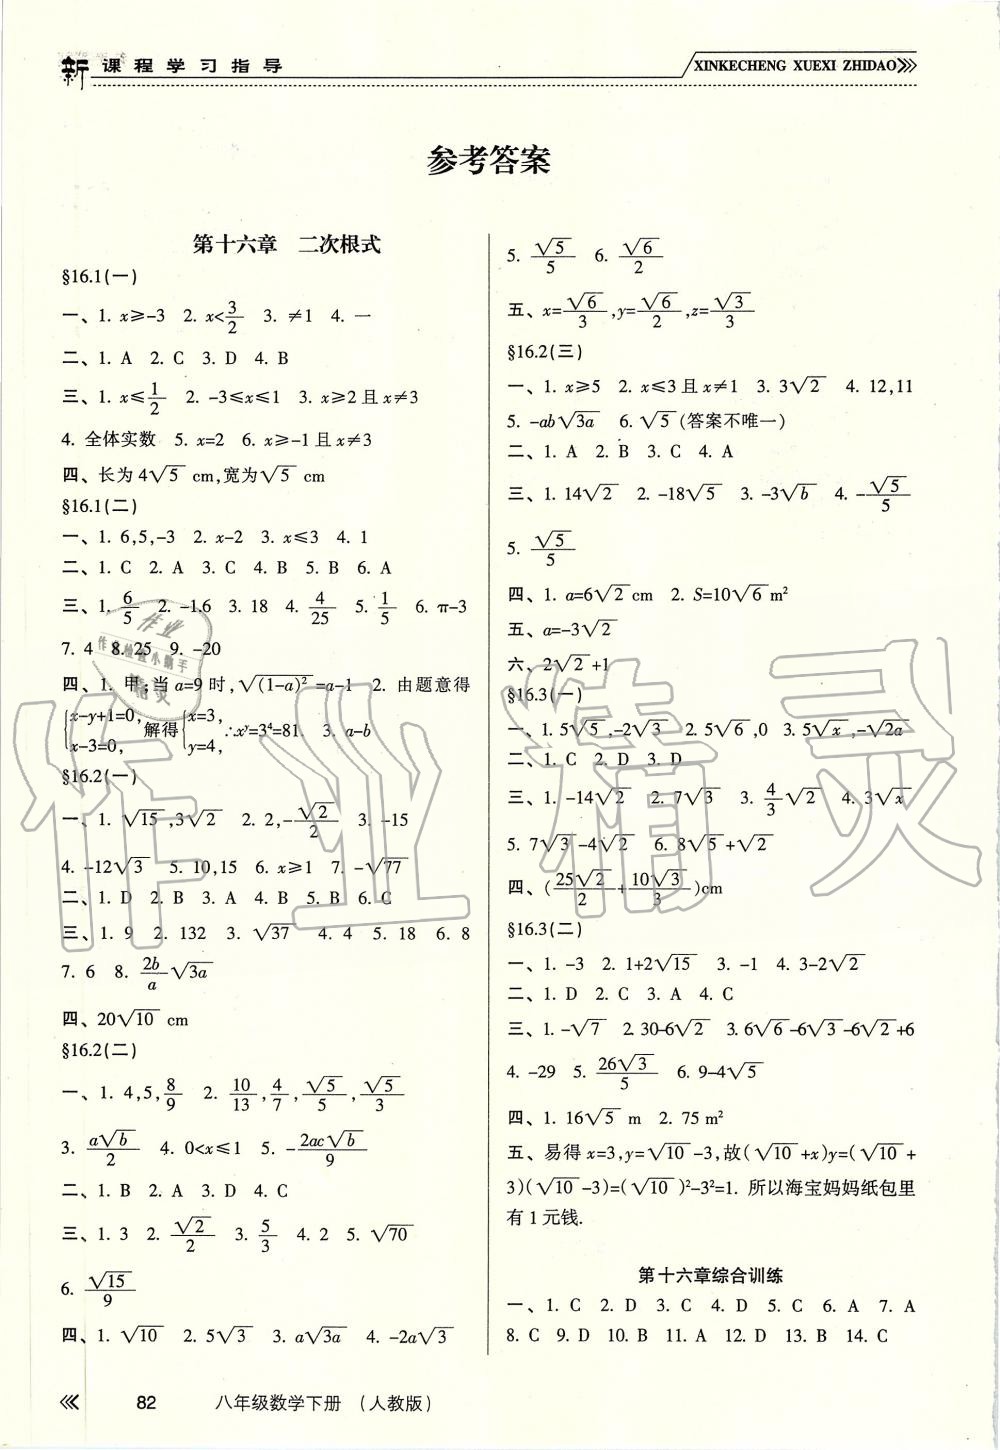 新课程学习指导
XINKECHENG XUEXI ZHIDAO
参考答案
第十六章 二次根式
§16.1(一)
一、1. x≥-3 2. x<3/2 3. ≠1 4. 一
二、1. A 2. C 3. D 4. B
三、1. x≤1/2 2. -3≤x≤1 3. x≥2且x≠3
4. 全体实数 5. x=2 6. x≥-1且x≠3
四、长为4√5 cm,宽为√5 cm
§16.1(二)
一、1. 6,5,-3 2. x-2 3. x≤3 4. 1
二、1. C 2. A 3. C 4. B 5. B 6. A
三、1. 6/5 2. -1.6 3. 18 4. 4/25 5. 1/5 6. π-3
7. 4 8. 25 9. -20
四、1. 甲;当a=9时,√(1-a)²=a-1 2. 由题意得
{x-y+1=0, x-3=0, 解得{x=3, y=4, ∴xʸ=3⁴=81. 3. a-b
§16.2(一)
一、1. √15,3√2 2. 2,-√2/2 3. -15
4. -12√3 5. 10,15 6. x≥1 7. -√77
二、1. D 2. B 3. A 4. B 5. B 6. C
三、1. 9 2. 132 3. √37 4. 4 5. 18 6. 8
7. 6 8. 2b/a√3a
四、20√10 cm
§16.2(二)
一、1. 4,5,8/9 2. 10/13,4/7,√5/5,√5/3
3. a√b/2 4. 0<x≤1 5. -2ac√b/9
二、1. B 2. A 3. D 4. C
三、1. 3 2. √2/2 3. 5/3 4. 2 5. √70
6. √15/9
四、1. √10 2. 5√3 3. a√3a 4. -2a√3
5. √5/5 6. √6/2
五、x=√6/3,y=√6/2,z=√3/3
§16.2(三)
一、1. x≥5 2. x≤3且x≠1 3. 3√2 4. 12,11
5. -ab√3a 6. √5(答案不唯一)
二、1. A 2. B 3. C 4. A
三、1. 14√2 2. -18√5 3. -3√b 4. -√5/5
5. √5/5
四、1. a=6√2 cm 2. S=10√6 m²
五、a=-3√2
六、2√2+1
§16.3(一)
一、1. 5√5,-2√3 2. 5√6,0 3. 5√x,-√2a
二、1. C 2. D 3. D
三、1. -14√2 2. 7√3 3. 4/3√2 4. 3√x
5. 7√3-4√2 6. 8√5+√2
四、(25√2/2+10√3/3)cm
§16.3(二)
一、1. -3 2. 1+2√15 3. -1 4. 3-2√2
二、1. D 2. C 3. A 4. C
三、1. -√7 2. 30-6√2 3. 6√6-6√3-6√2+6
4. -29 5. 26√3/5 6. 9-4√5
四、1. 16√5 m 2. 75 m²
五、易得x=3,y=√10-3,故(√10+x)y=(√10+
3)(√10-3)=(√10)²-3²=1. 所以海宝妈妈纸包里
有1元钱.
第十六章综合训练
一、1. C 2. D 3. C 4. D 5. C 6. A 7. A
8. C 9. D 10. B 11. A 12. D 13. B 14. C
82 八年级数学下册 (人教版)
作业精灵